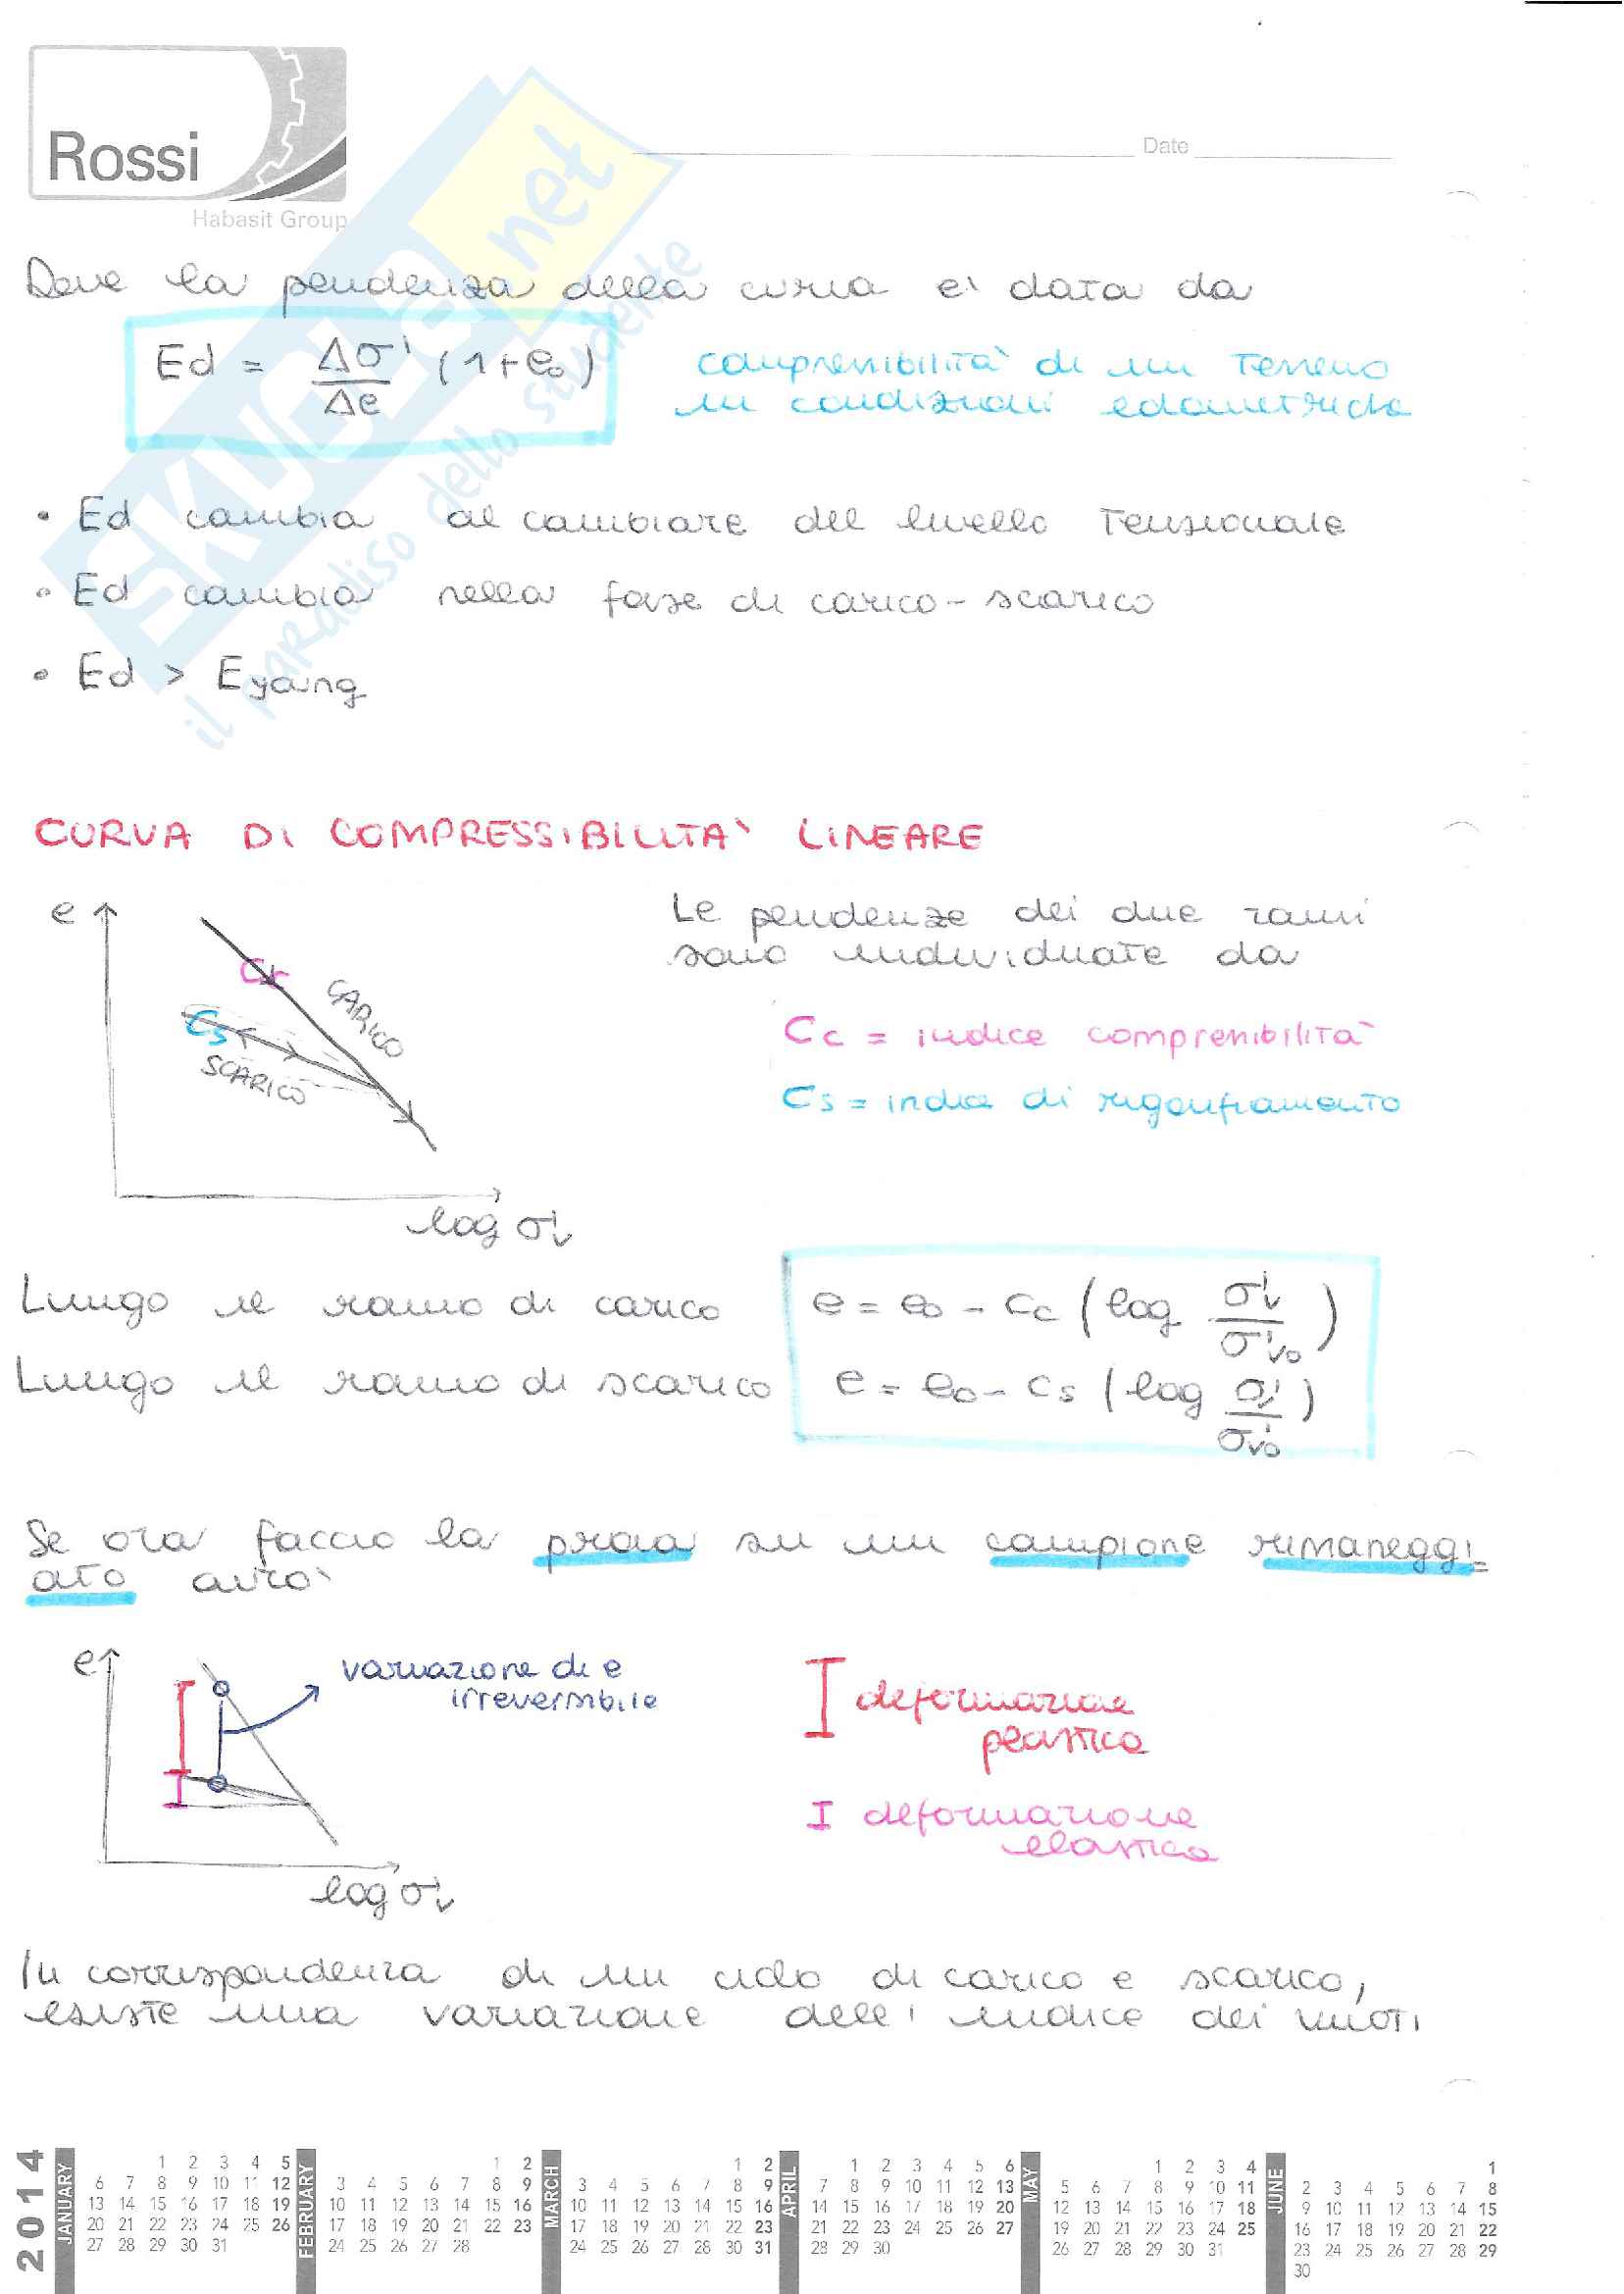 Rossi
Habasit Group
Date
SKUOLA.net
il paradiso dello studente
Dove la pendenza della curva e' data da
Ed = Δσ' / Δe (1+e₀)
compressibilità di un terreno
in condizioni edometriche
• Ed cambia al cambiare del livello tensionale
• Ed cambia nella fase di carico-scarico
• Ed > Eyoung
CURVA DI COMPRESSIBILITA' LINEARE
e
Cc
CARICO
Cs
SCARICO
log σ'v
Le pendenze dei due rami
sono individuate da
Cc = indice compressibilità
Cs = indice di rigonfiamento
Lungo il ramo di carico e = e₀ - Cc (log σ'v / σ'v₀)
Lungo il ramo di scarico e = e₀ - Cs (log σ'v / σ'v₀)
Se ora faccio la prova su un campione rimaneggi
ato avrò
e
variazione di e
irreversibile
log σ'v
deformazione
plastica
deformazione
elastica
In corrispondenza di un ciclo di carico e scarico,
esiste una variazione dell' indice dei vuoti
2014
JANUARY
1 2 3 4 5
6 7 8 9 10 11 12
13 14 15 16 17 18 19
20 21 22 23 24 25 26
27 28 29 30 31
FEBRUARY
1 2
3 4 5 6 7 8 9
10 11 12 13 14 15 16
17 18 19 20 21 22 23
24 25 26 27 28
MARCH
1 2
3 4 5 6 7 8 9
10 11 12 13 14 15 16
17 18 19 20 21 22 23
24 25 26 27 28 30 31
APRIL
1 2 3 4 5 6
7 8 9 10 11 12 13
14 15 16 17 18 19 20
21 22 23 24 25 26 27
28 29 30
MAY
1 2 3 4
5 6 7 8 9 10 11
12 13 14 15 16 17 18
19 20 21 22 23 24 25
26 27 28 29 30 31
JUNE
1
2 3 4 5 6 7 8
9 10 11 12 13 14 15
16 17 18 19 20 21 22
23 24 25 26 27 28 29
30